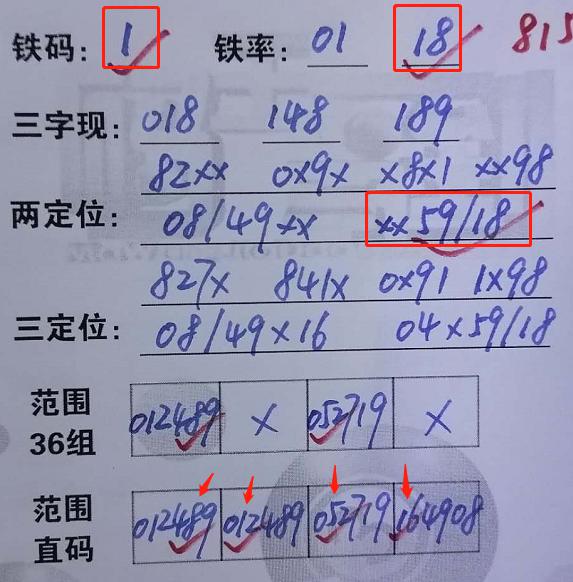 铁码: 1 铁率: 01 18 815
三字现: 018 148 189
82xx 0x9x x8x1 xx98
两定位: 08/49xx xx59/18
827x 841x 0x91 1x98
三定位: 08/49x16 04x59/18
范围 36组 012489 x 052719 x
范围 直码 012489 012489 052719 164908